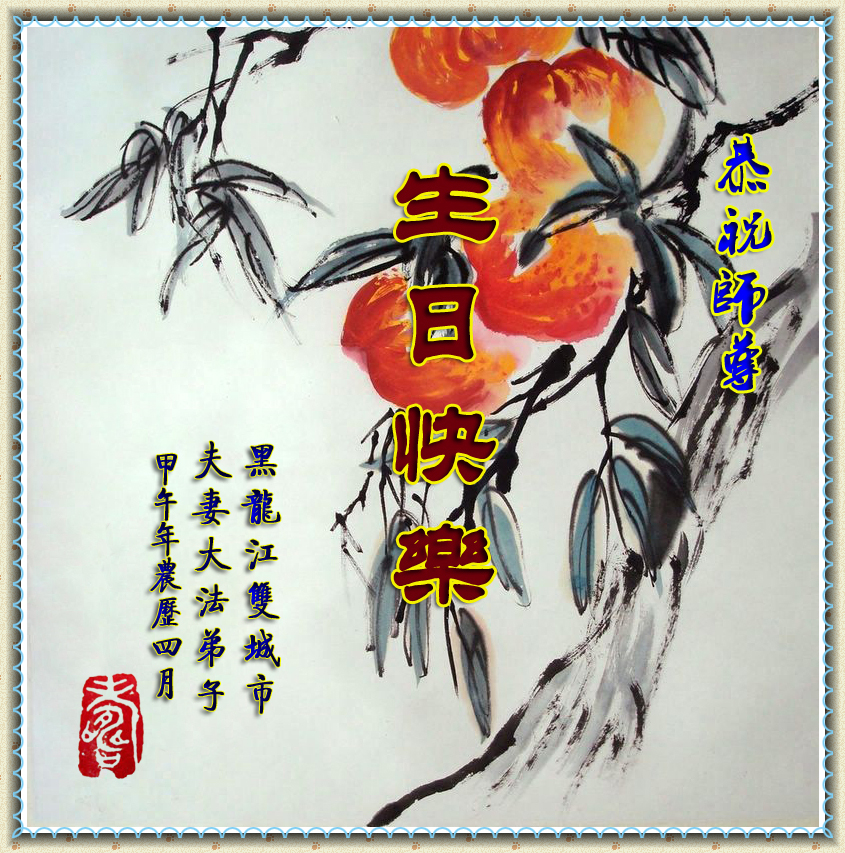 恭祝師尊
生日快樂
黑龍江雙城市
夫妻大法弟子
甲午年農歷四月
壽